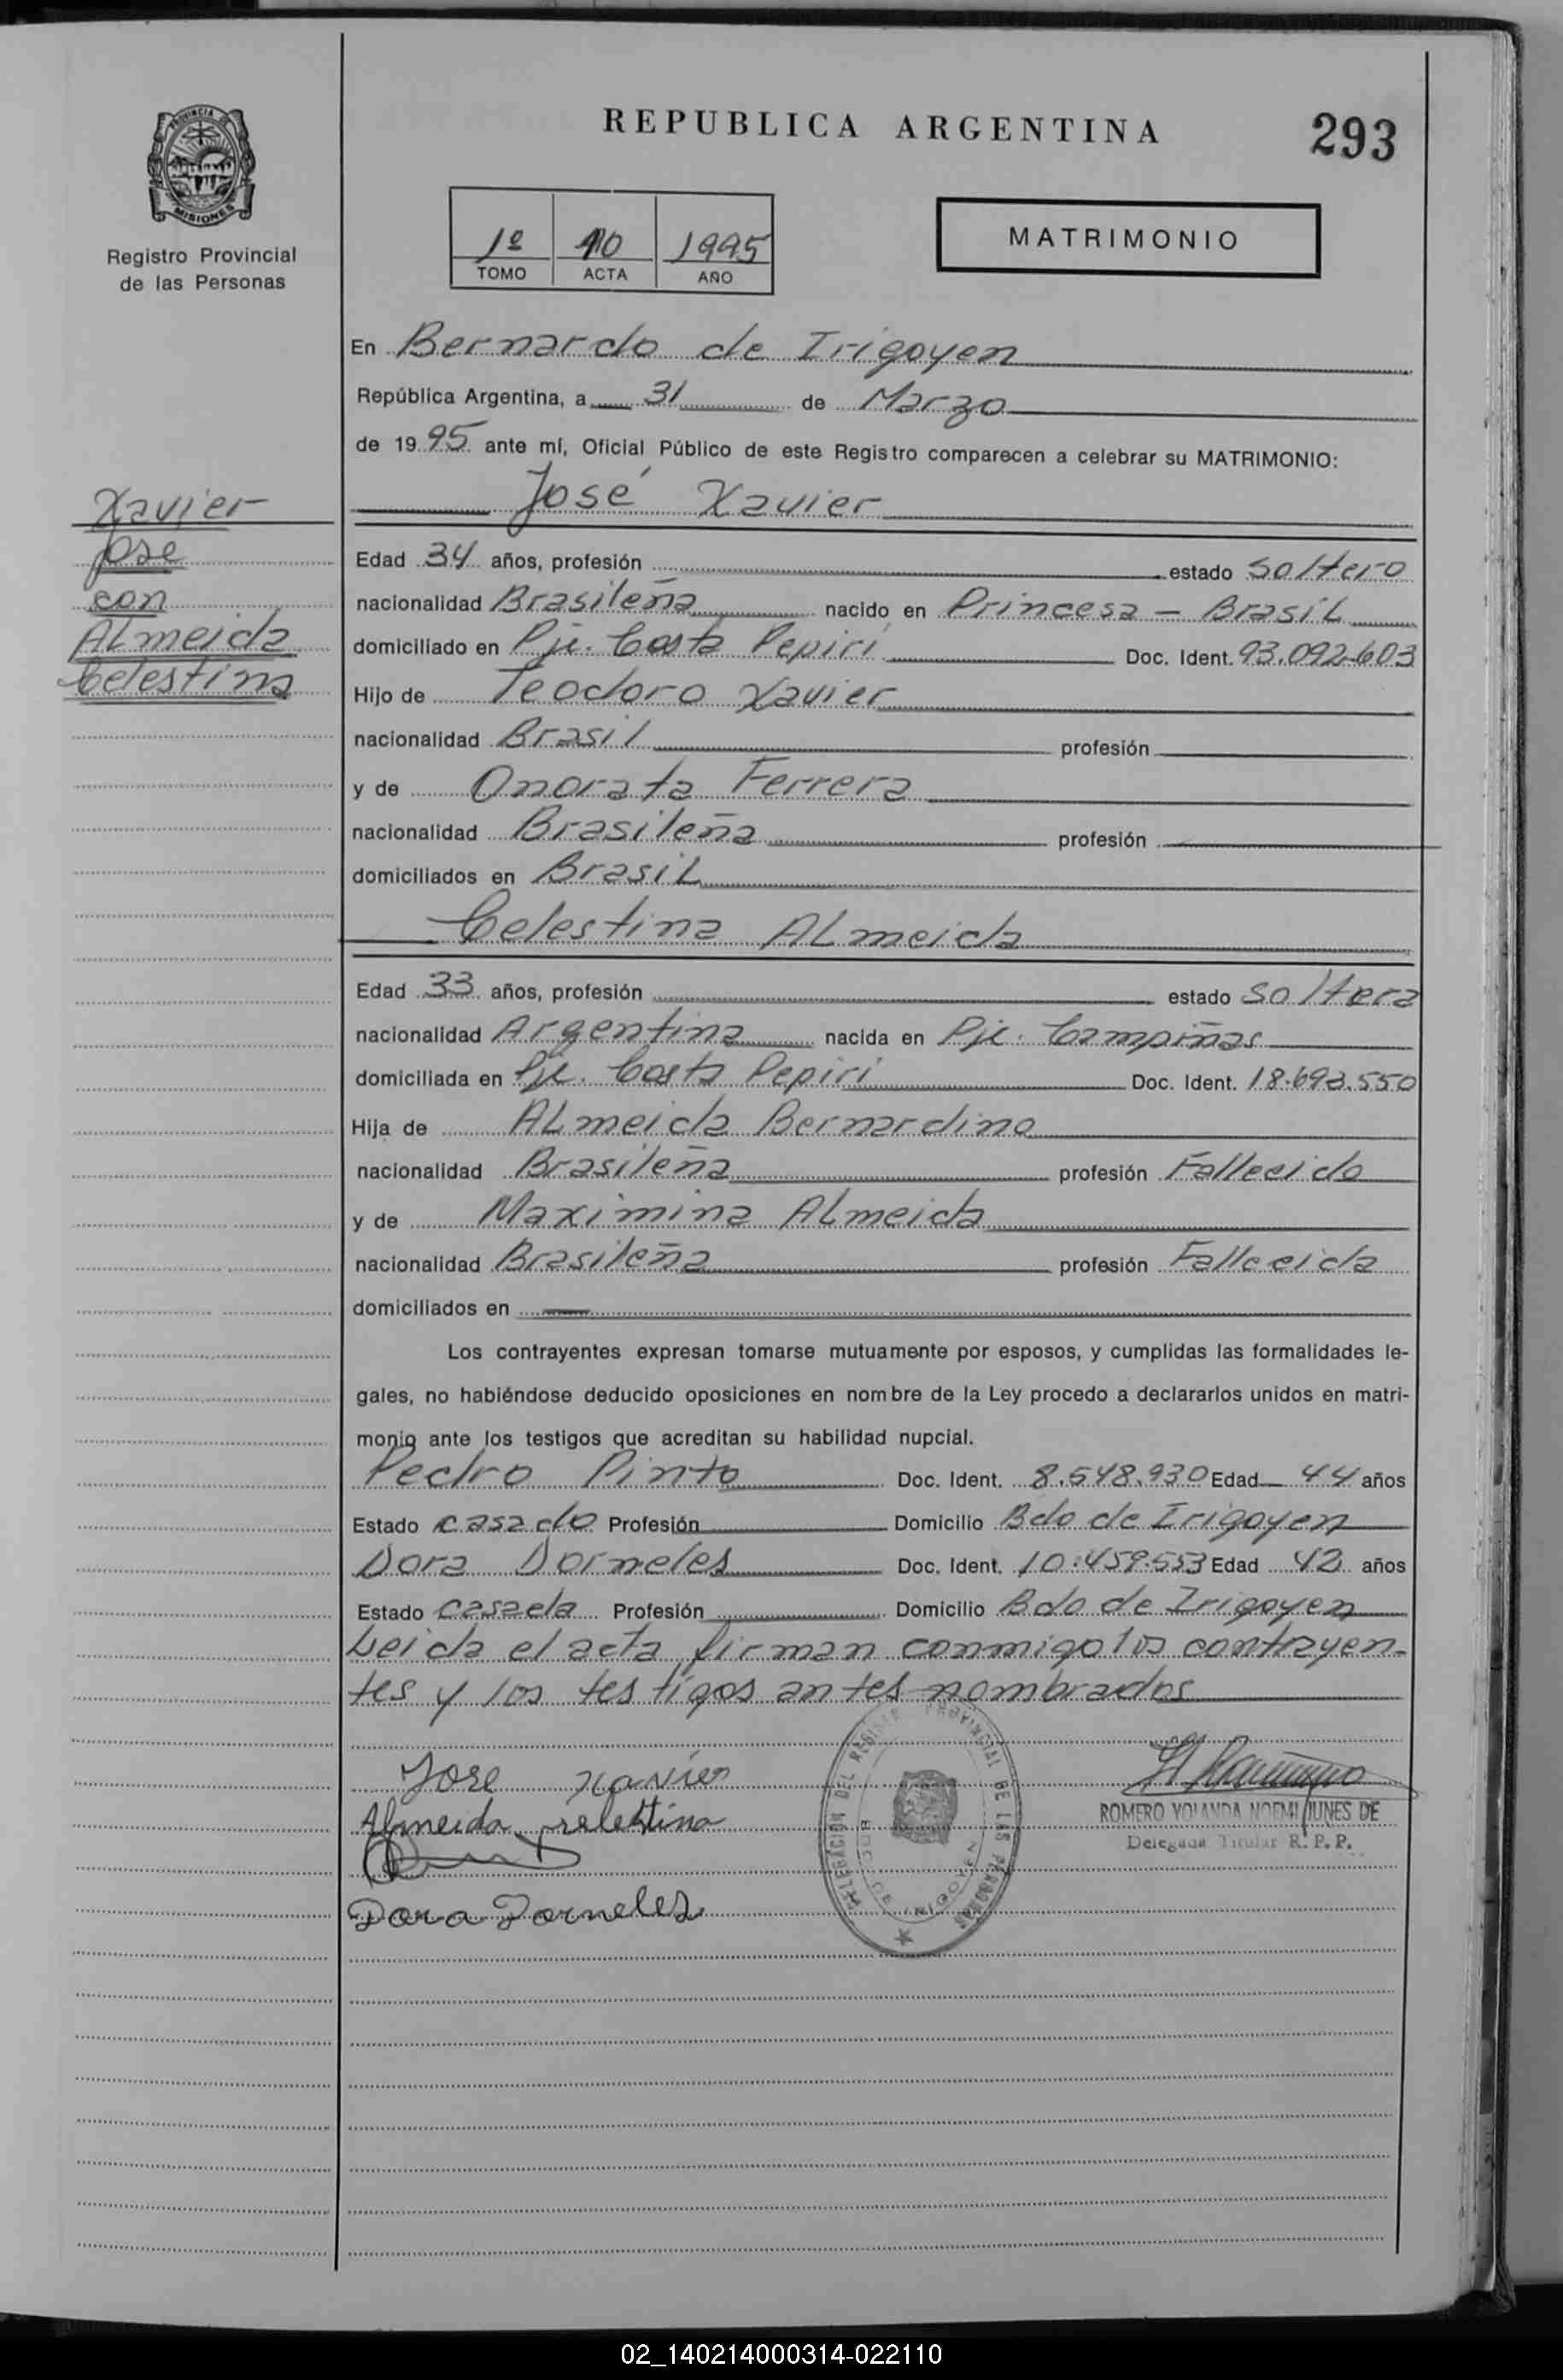 PROVINCIA DE
MISIONES
Registro Provincial
de las Personas
REPUBLICA ARGENTINA
293
1º 10 1995
TOMO ACTA AÑO
MATRIMONIO
En Bernardo de Irigoyen
República Argentina, a 31 de Marzo
de 1995 ante mí, Oficial Público de este Registro comparecen a celebrar su MATRIMONIO:
José Xavier
Xavier
Jose
con
Almeida
Celestina
Edad 34 años, profesión estado soltero
nacionalidad Brasileña nacido en Princesa - Brasil
domiciliado en Pje. Costa Pepirí Doc. Ident. 93.092.603
Hijo de Teodoro Xavier
nacionalidad Brasil profesión
y de Onorata Ferrera
nacionalidad Brasileña profesión
domiciliados en Brasil
Celestina Almeida
Edad 33 años, profesión estado soltera
nacionalidad Argentina nacida en Pje. Campiñas
domiciliada en Pje. Costa Pepirí Doc. Ident. 18.693.550
Hija de Almeida Bernardino
nacionalidad Brasileña profesión Fallecido
y de Maximina Almeida
nacionalidad Brasileña profesión Fallecida
domiciliados en
Los contrayentes expresan tomarse mutuamente por esposos, y cumplidas las formalidades le-
gales, no habiéndose deducido oposiciones en nombre de la Ley procedo a declararlos unidos en matri-
monio ante los testigos que acreditan su habilidad nupcial.
Pedro Pinto Doc. Ident. 8.548.930 Edad 44 años
Estado casado Profesión Domicilio Bdo de Irigoyen
Dora Dorneles Doc. Ident. 10.459.553 Edad 42 años
Estado casada Profesión Domicilio Bdo de Irigoyen
Leida el acta firman conmigo los contrayen-
tes y los testigos antes nombrados
Jose Xavier
Almeida Celestina
Dora Dorneles
DELEGACION DEL REGISTRO PROVINCIAL DE LAS PERSONAS
BDO. DE IRIGOYEN
ROMERO YOLANDA NOEMI JUNES DE
Delegada Titular R. P. P.
02_140214000314-022110